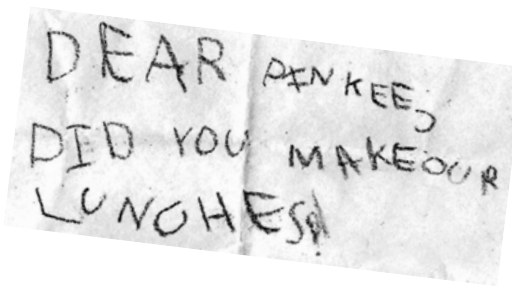 DEAR PINKEE,
DID YOU MAKE OUR
LUNCHES?